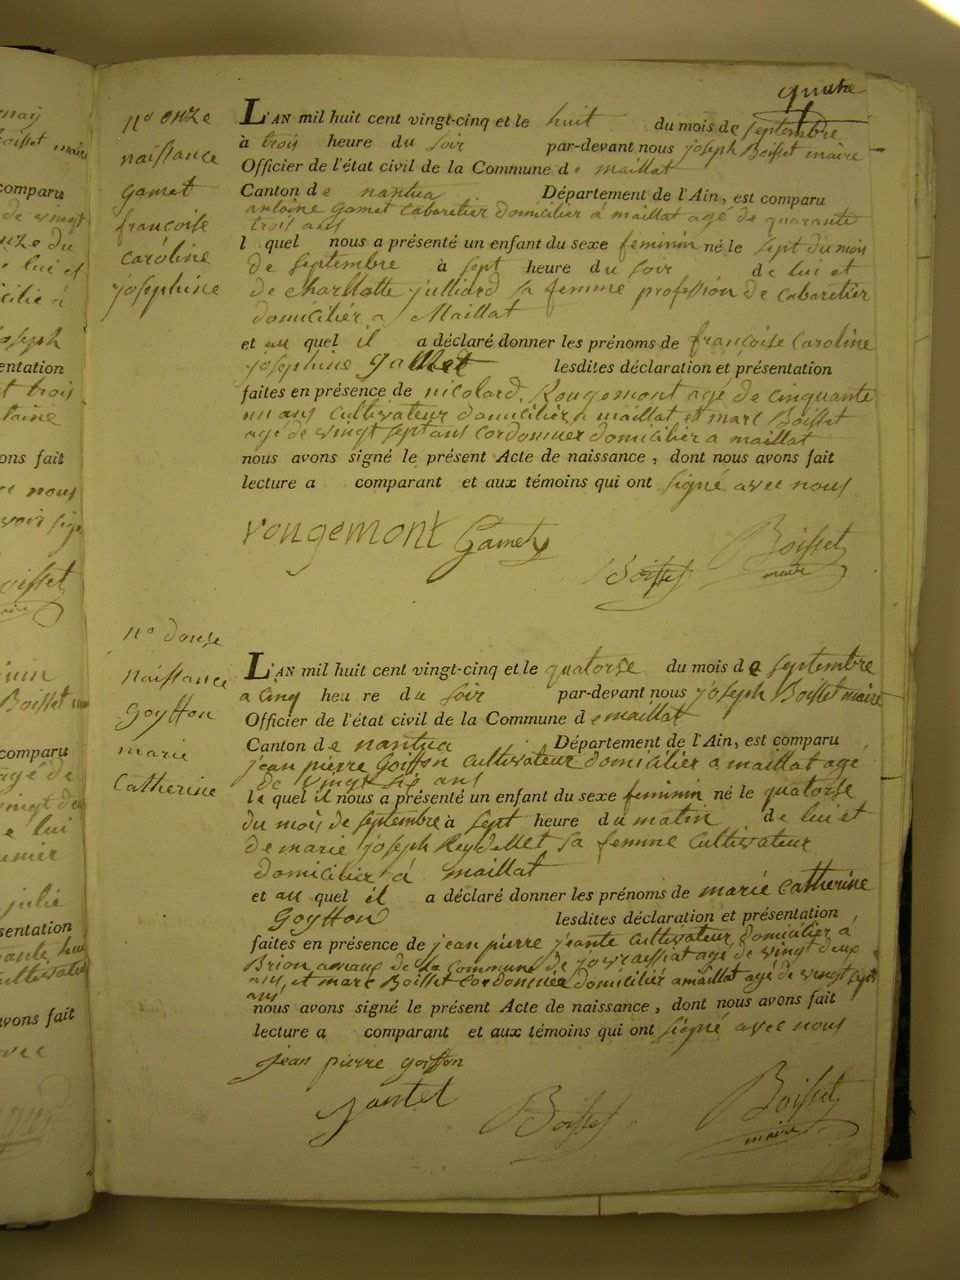 quatre
n.o onze
naissance
gamet
françoise
caroline
josephine
L'AN mil huit cent vingt-cinq et le huit du mois de septembre
à trois heure du soir par-devant nous joseph Boisset maire
Officier de l'état civil de la Commune de maillat
Canton de nantua Département de l'Ain, est comparu
antoine gamet cabaretier domicilier a maillat agé de quarante
trois ans
l quel nous a présenté un enfant du sexe feminin né le sept du mois
de septembre à sept heure du soir de lui et
de charllotte julliard sa femme profession de cabaretier
domicilier a Maillat
et au quel il a déclaré donner les prénoms de françoise caroline
josephine gamet lesdites déclaration et présentation
faites en présence de nicolard Rougemont agé de cinquante
un ans cultivateur domicilier a maillat et marc Boisset
agé de vingt sept ans cordonnier domicilier a maillat
nous avons signé le présent Acte de naissance, dont nous avons fait
lecture a comparant et aux témoins qui ont signé avec nous
rougemont Gamet
Boisset Boisset
maire
n.o douse
naissance
goyffon
marie
Catherine
L'AN mil huit cent vingt-cinq et le quatorse du mois de septembre
a cinq heure du soir par-devant nous joseph Boisset maire
Officier de l'état civil de la Commune de maillat
Canton de nantua Département de l'Ain, est comparu
jean pierre Goiffon cultivateur domicilier a maillat agé
de vingt six ans
le quel il nous a présenté un enfant du sexe feminin né le quatorse
du mois de septembre à sept heure du matin de lui et
de marie joseph Reydellet sa femme cultivateur
domicilier á maillat
et au quel il a déclaré donner les prénoms de marie Catherine
Goyffon lesdites déclaration et présentation
faites en présence de jean pierre jeante cultivateur domicilier a
Brion de la commune de agé de vingt deux
ans et marc Boisset cordonnier domicilié a maillat agé de vingt sept
ans
nous avons signé le présent Acte de naissance, dont nous avons fait
lecture a comparant et aux témoins qui ont signé avec nous
jean pierre goiffon
Boisset Boisset
maire